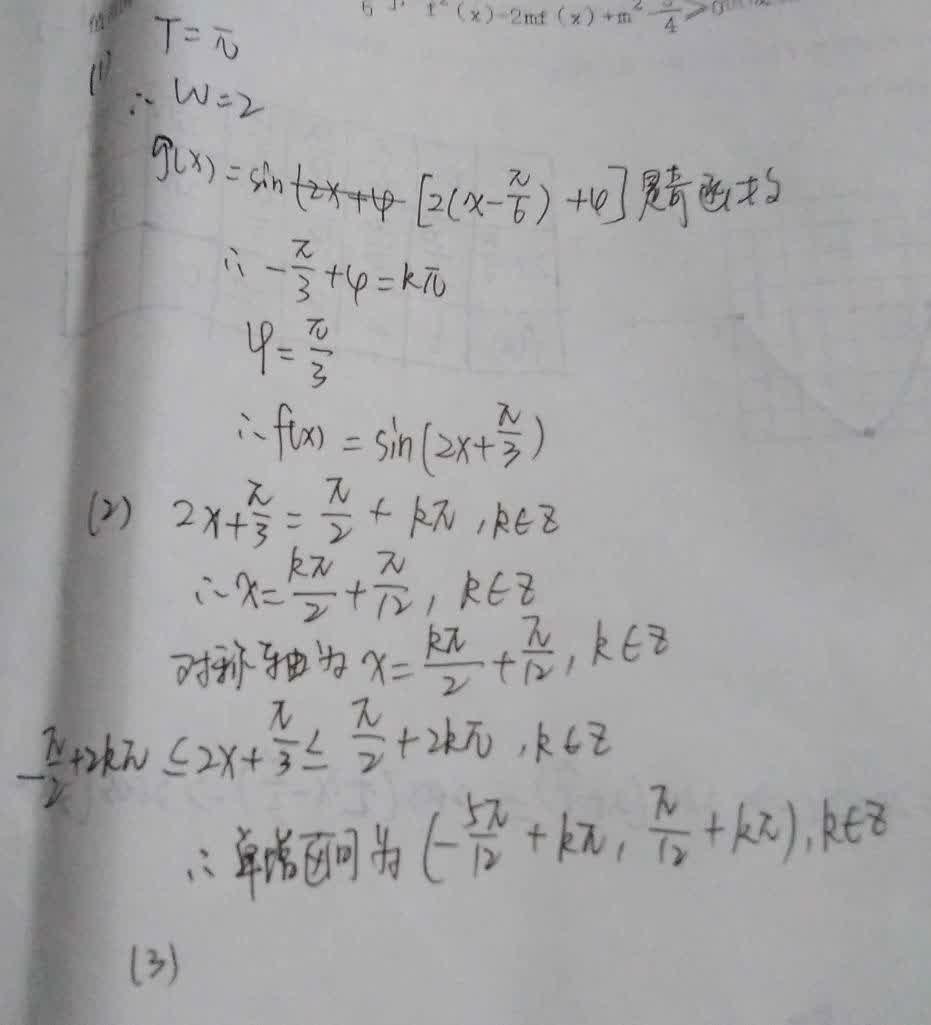 f²(x)-2mf(x)+m²-3/4>0
(1) T=π
∴ W=2
g(x)=sin[2(x-π/6)+φ]是奇函数
∴ -π/3+φ=kπ
φ=π/3
∴ f(x)=sin(2x+π/3)
(2) 2x+π/3=π/2+kπ,k∈Z
∴ x=kπ/2+π/12,k∈Z
对称轴为x=kπ/2+π/12,k∈Z
-π/2+2kπ≤2x+π/3≤π/2+2kπ,k∈Z
∴ 单增区间为(-5π/12+kπ,π/12+kπ),k∈Z
(3)